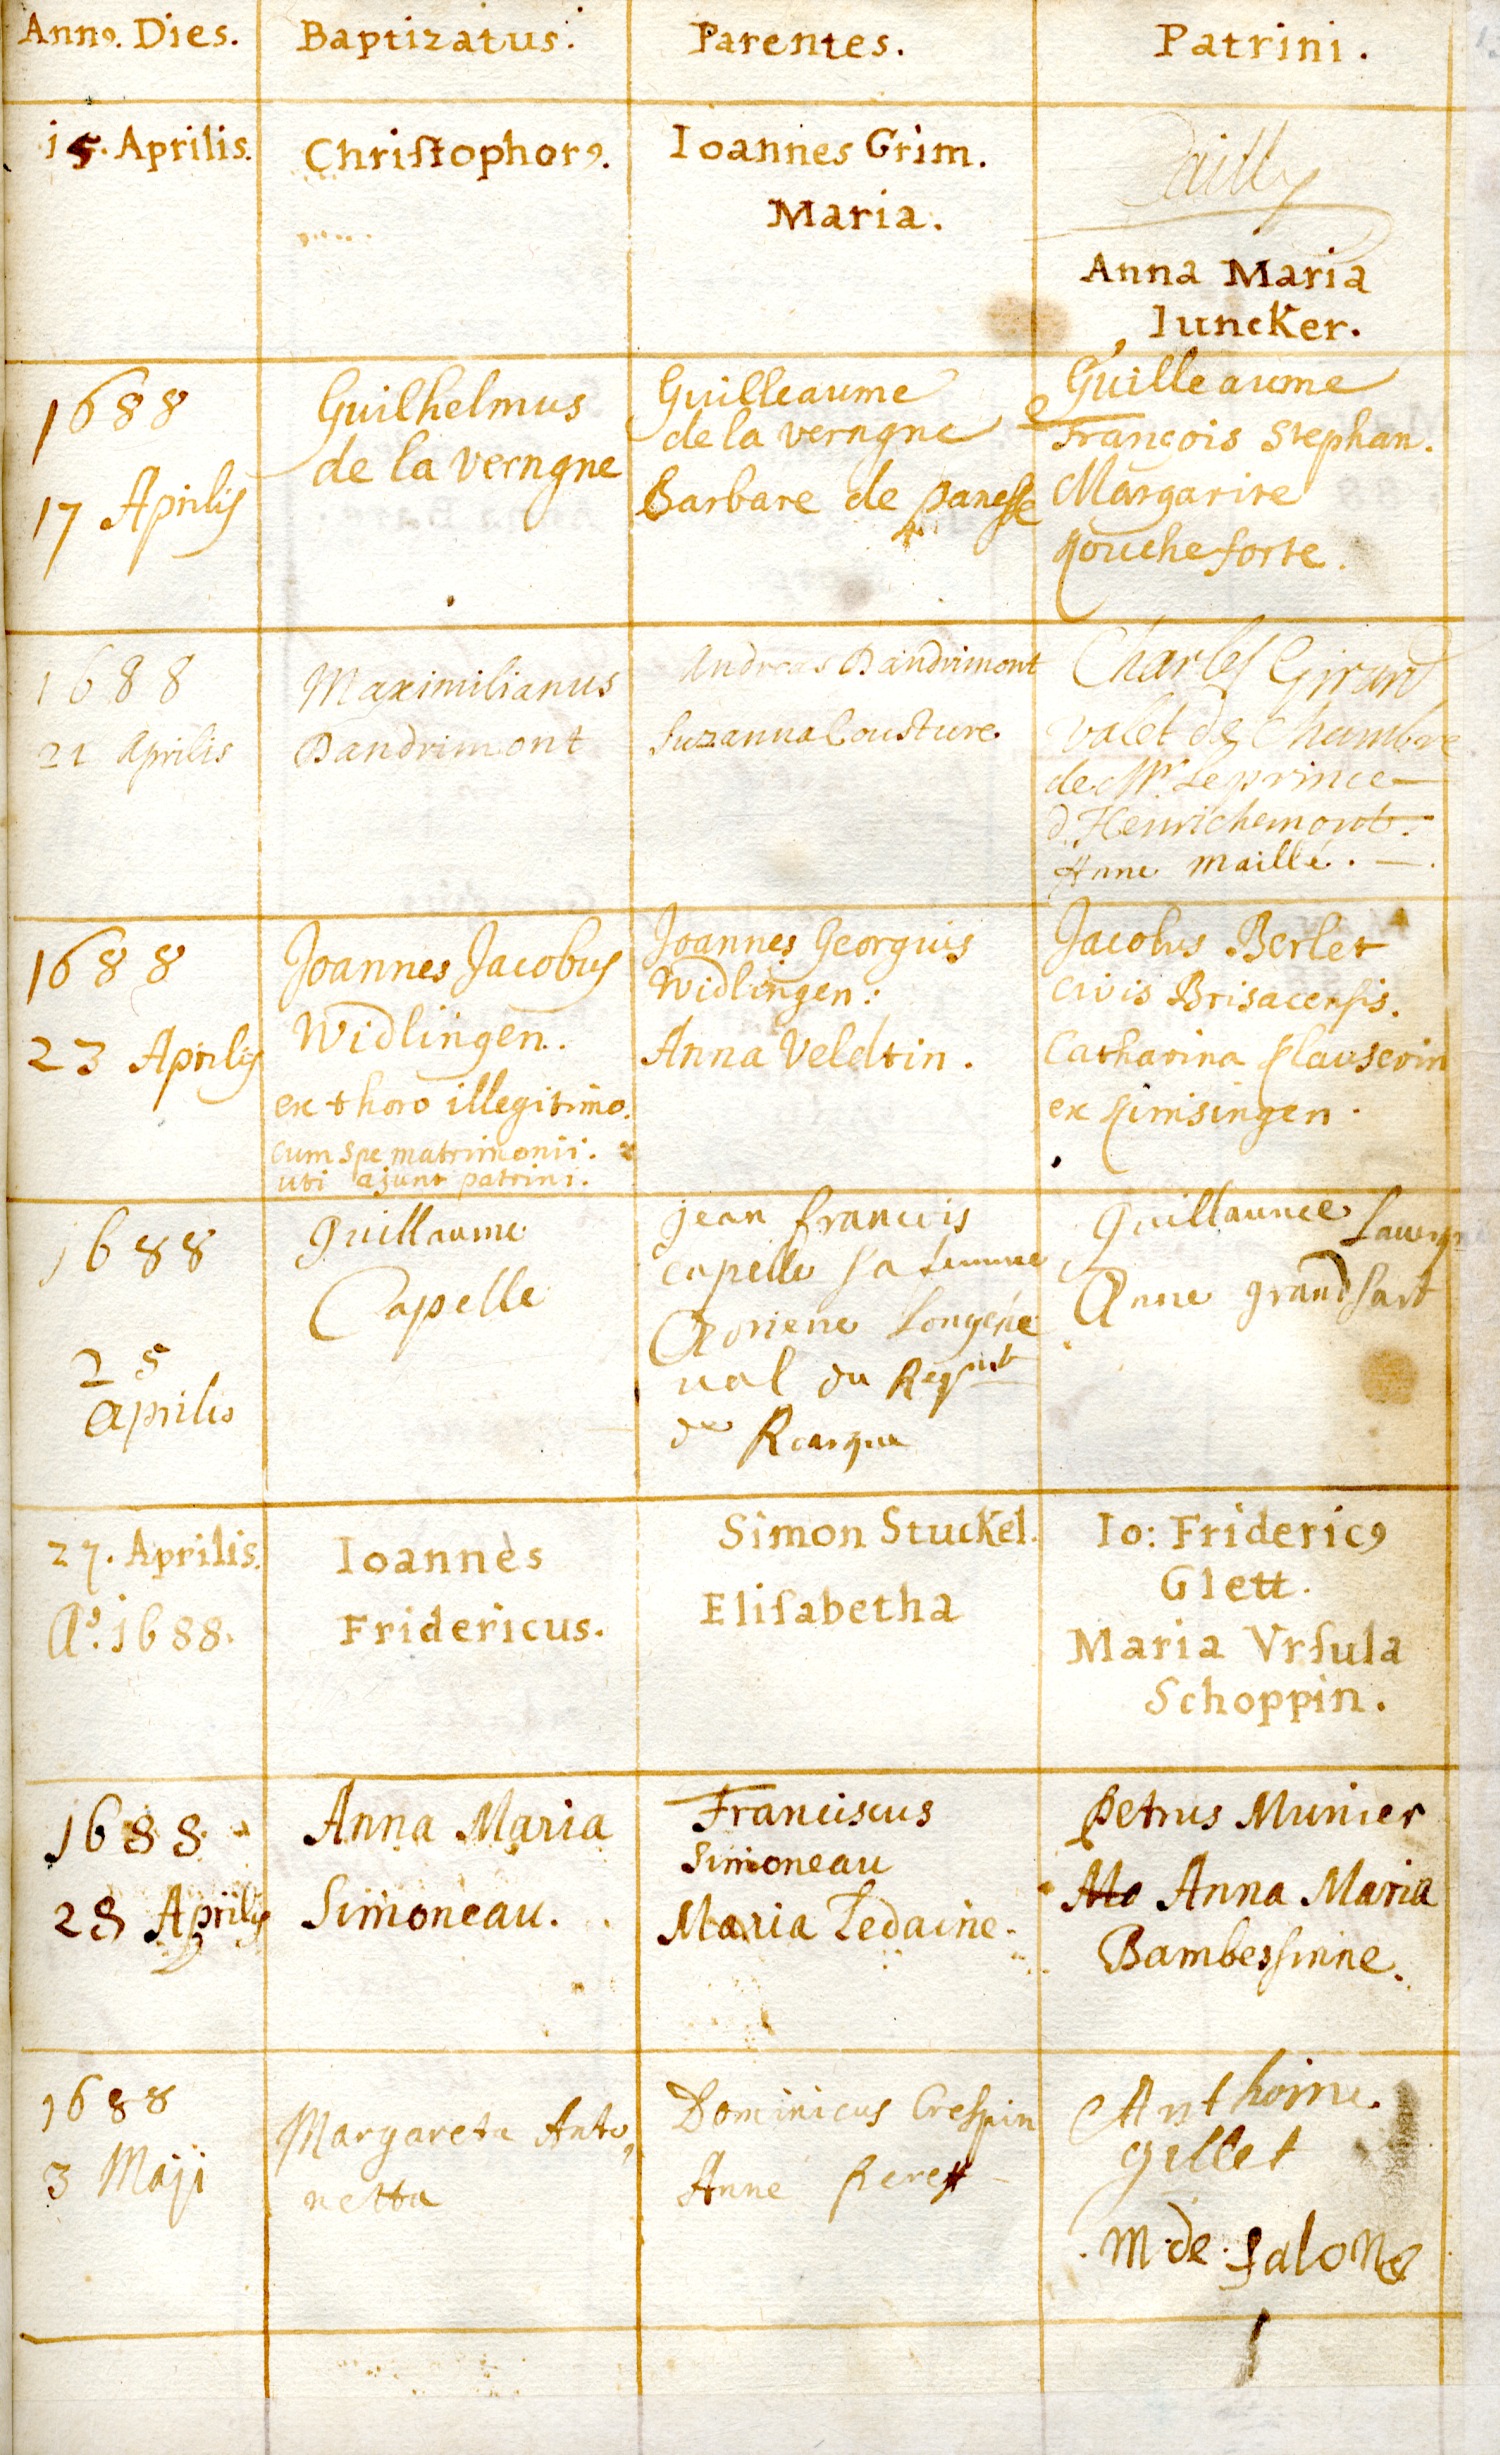 Ann9. Dies.
Baptizatus.
Parentes.
Patrini.
15. Aprilis.
Chriſtophor9.
Ioannes Grim.
Maria.
Dailly
Anna Maria
Iuncker.
1688
17 Aprilis
Guilhelmus
de la verngne
Guilleaume
de la verngne
Barbare de panesse
Guilleaume
François Stephan.
Margarite
Roucheforte.
1688
21 Aprilis
Maximilianus
Dandrimont
Andreas Dandrimont
Suzanna Cousture
Charles Girard
valet de Chambre
de Mr. Le prince
d'Henrichemont.
Anne maillé.
1688
23 Aprilis
Joannes Jacobus
Widlingen.
ex thoro illegitimo.
cum spe matrimonii.
uti ajunt patrini.
Joannes Georgius
Widlingen:
Anna Veldtin.
Jacobus Berlet
civis Brisacensis.
Catharina Klauserin
ex Rimsingen.
1688
25
Aprilis
Guillaume
Capelle
jean francois
capelle sa femme
Adriene Longue
ual du Regmt
de
Guillaume
Anne grandsart
27. Aprilis.
Ao. 1688.
Ioannes
Fridericus.
Simon Stuckel.
Eliſabetha
Io: Frideric9
Glett.
Maria Vrſula
Schoppin.
1688
28 Aprilis
Anna Maria
Simoneau.
Franciscus
Simoneau
Maria Ledaine.
Petrus Munier
Anna Maria
Bambessinne.
1688
3 Maji
Margareta Anto,
netta
Dominicus Crespin
Anne
Anthoine
gillet
M. de Salons